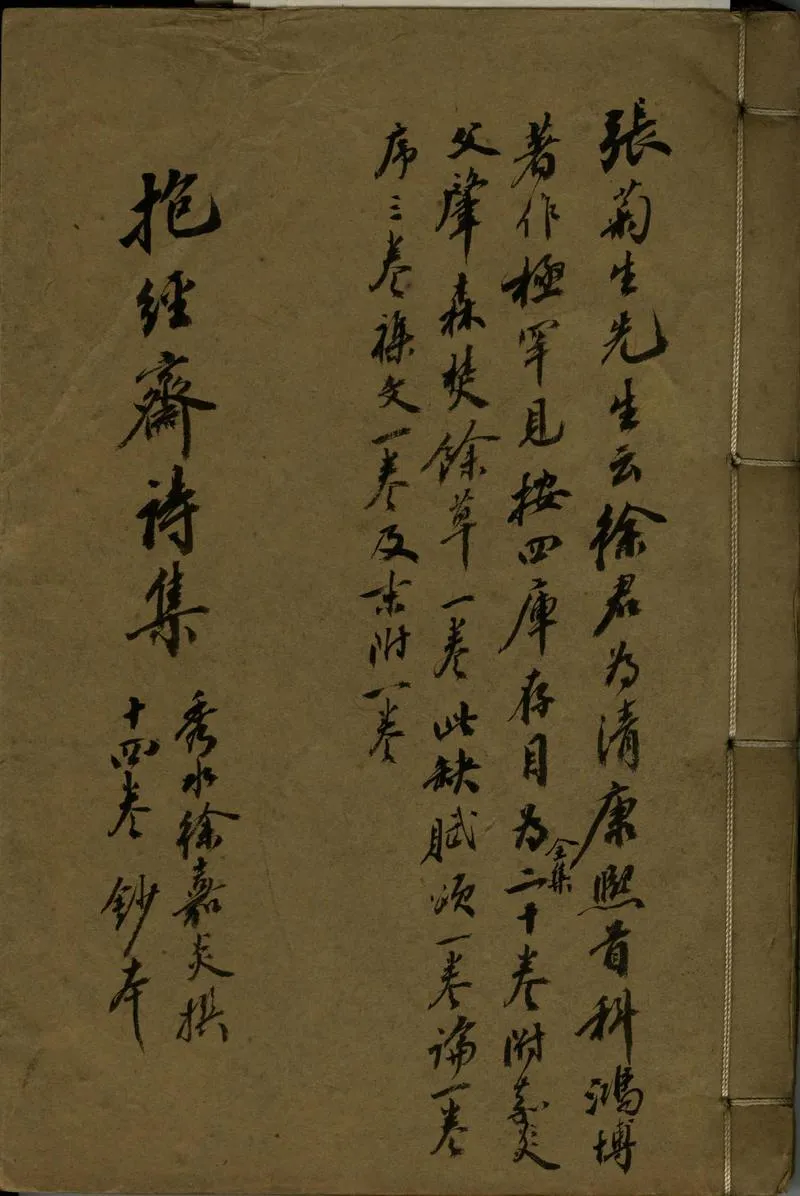 張菊生先生云徐君為清康熙首科鴻博
著作極罕見按四庫存目為全集二十卷附嘉炎
父肇森焚餘草一卷此缺賦頌一卷論一卷
序三卷襍文一卷及末附一卷
抱經齋詩集
秀水徐嘉炎撰
十四卷鈔本